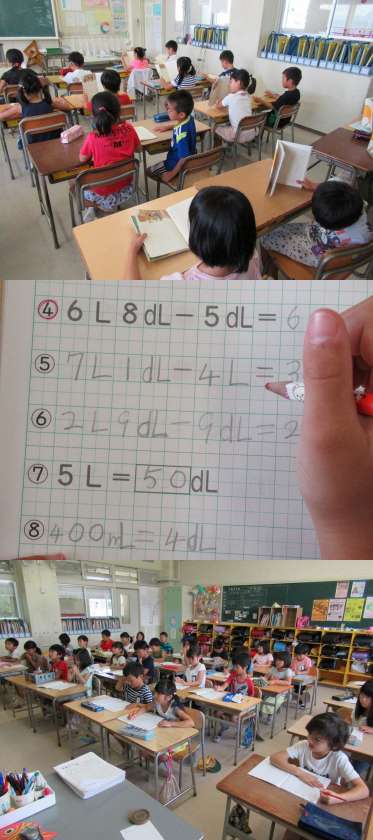 ④ 6 L 8 dL − 5 dL = 6
⑤ 7 L 1 dL − 4 L = 3
⑥ 2 L 9 dL − 9 dL = 2
⑦ 5 L = 50 dL
⑧ 400 mL = 4 dL